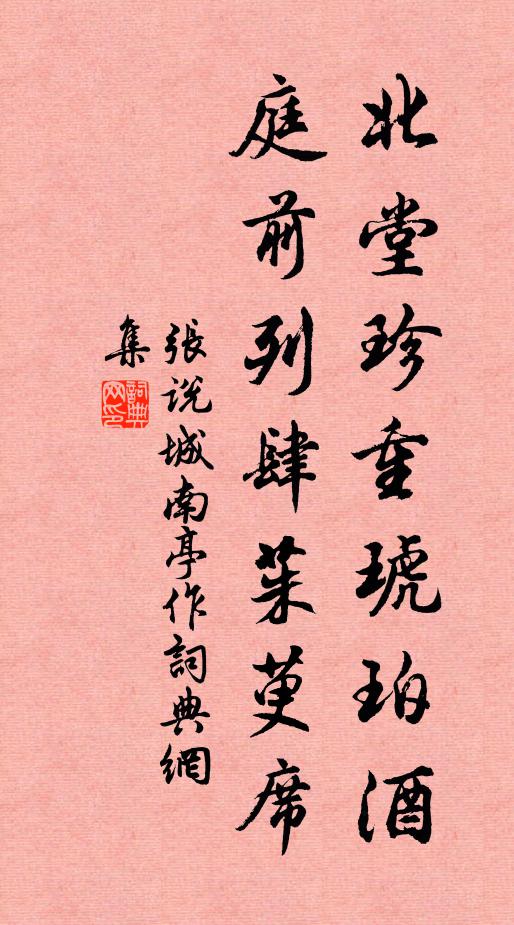 北堂珍重琥珀酒
庭前列肆茱萸席
張説城南亭作詞典網
集
詞典
网印